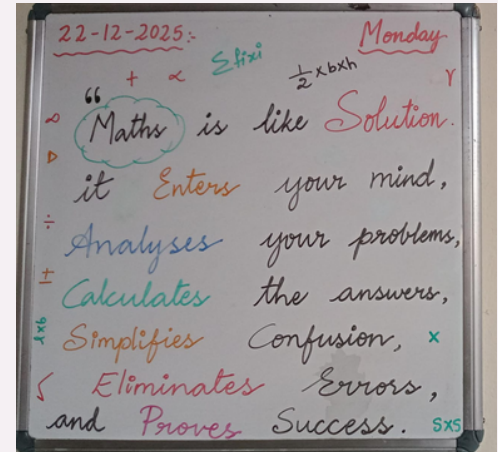 22-12-2025:- Monday
+ ∝ Σfixi 1/2 xbxh
“ Maths is like Solution.
it Enters your mind,
Analyses your problems,
Calculates the answers,
Simplifies Confusion, x
Eliminates Errors,
and Proves Success. SxS